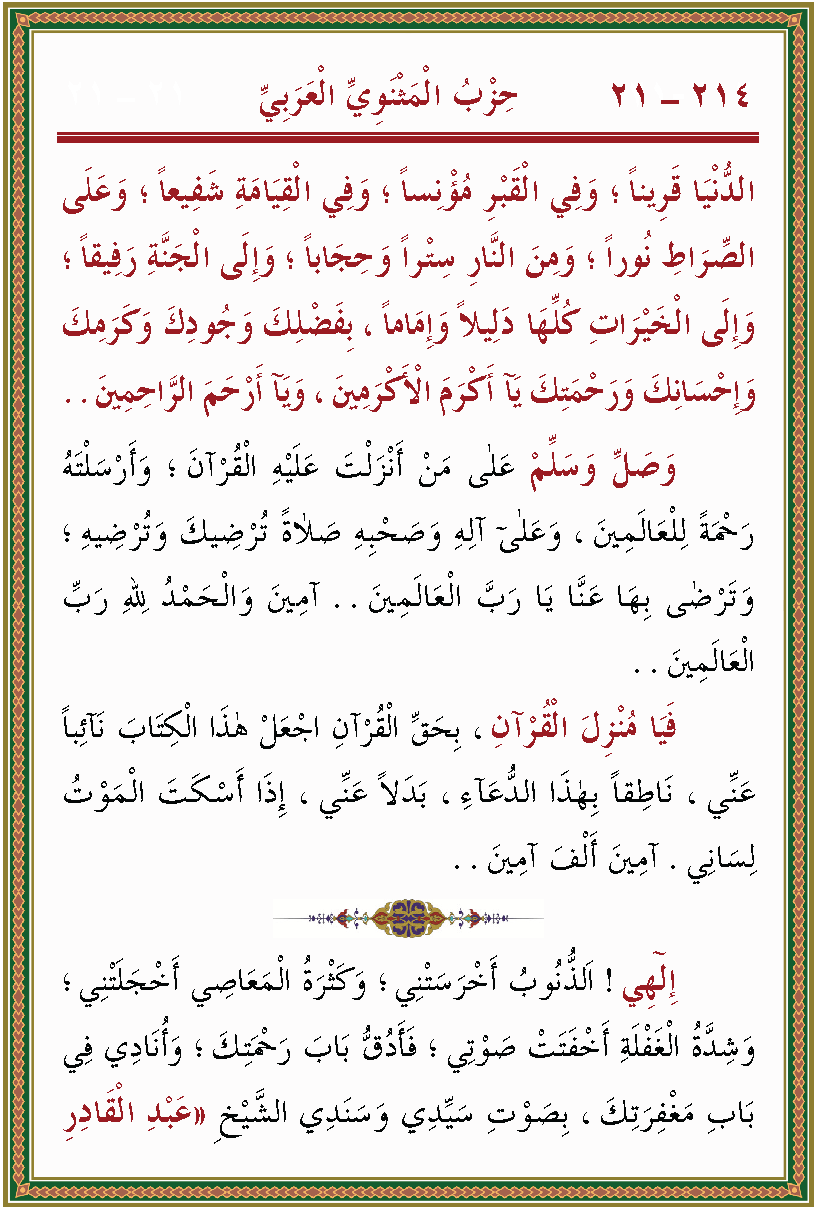 ٢١٤ – ٢١ حِزْبُ الْمَثْنَوِيِّ الْعَرَبِيِّ ٢١ – ٢١
الدُّنْيَا قَرِيناً ؛ وَفِي الْقَبْرِ مُؤْنِساً ؛ وَفِي الْقِيَامَةِ شَفِيعاً ؛ وَعَلَى
الصِّرَاطِ نُوراً ؛ وَمِنَ النَّارِ سِتْراً وَحِجَاباً ؛ وَإِلَى الْجَنَّةِ رَفِيقاً ؛
وَإِلَى الْخَيْرَاتِ كُلِّهَا دَلِيلاً وَإِمَاماً ، بِفَضْلِكَ وَجُودِكَ وَكَرَمِكَ
وَإِحْسَانِكَ وَرَحْمَتِكَ يَآ أَكْرَمَ الْأَكْرَمِينَ ، وَيَآ أَرْحَمَ الرَّاحِمِينَ . .
وَصَلِّ وَسَلِّمْ عَلٰى مَنْ أَنْزَلْتَ عَلَيْهِ الْقُرْآنَ ؛ وَأَرْسَلْتَهُ
رَحْمَةً لِلْعَالَمِينَ ، وَعَلٰىٓ آلِهِ وَصَحْبِهِ صَلٰاةً تُرْضِيكَ وَتُرْضِيهِ ؛
وَتَرْضٰى بِهَا عَنَّا يَا رَبَّ الْعَالَمِينَ . . آمِينَ وَالْحَمْدُ لِلّٰهِ رَبِّ
الْعَالَمِينَ . .
فَيَا مُنْزِلَ الْقُرْآنِ ، بِحَقِّ الْقُرْآنِ اجْعَلْ هٰذَا الْكِتَابَ نَآئِباً
عَنِّي ، نَاطِقاً بِهٰذَا الدُّعَآءِ ، بَدَلاً عَنِّي ، إِذَا أَسْكَتَ الْمَوْتُ
لِسَانِي . آمِينَ أَلْفَ آمِينَ . .
إِلٓهِي ! اَلذُّنُوبُ أَخْرَسَتْنِي ؛ وَكَثْرَةُ الْمَعَاصِي أَخْجَلَتْنِي ؛
وَشِدَّةُ الْغَفْلَةِ أَخْفَتَتْ صَوْتِي ؛ فَأَدُقُّ بَابَ رَحْمَتِكَ ؛ وَأُنَادِي فِي
بَابِ مَغْفِرَتِكَ ، بِصَوْتِ سَيِّدِي وَسَنَدِي الشَّيْخِ «عَبْدِ الْقَادِرِ